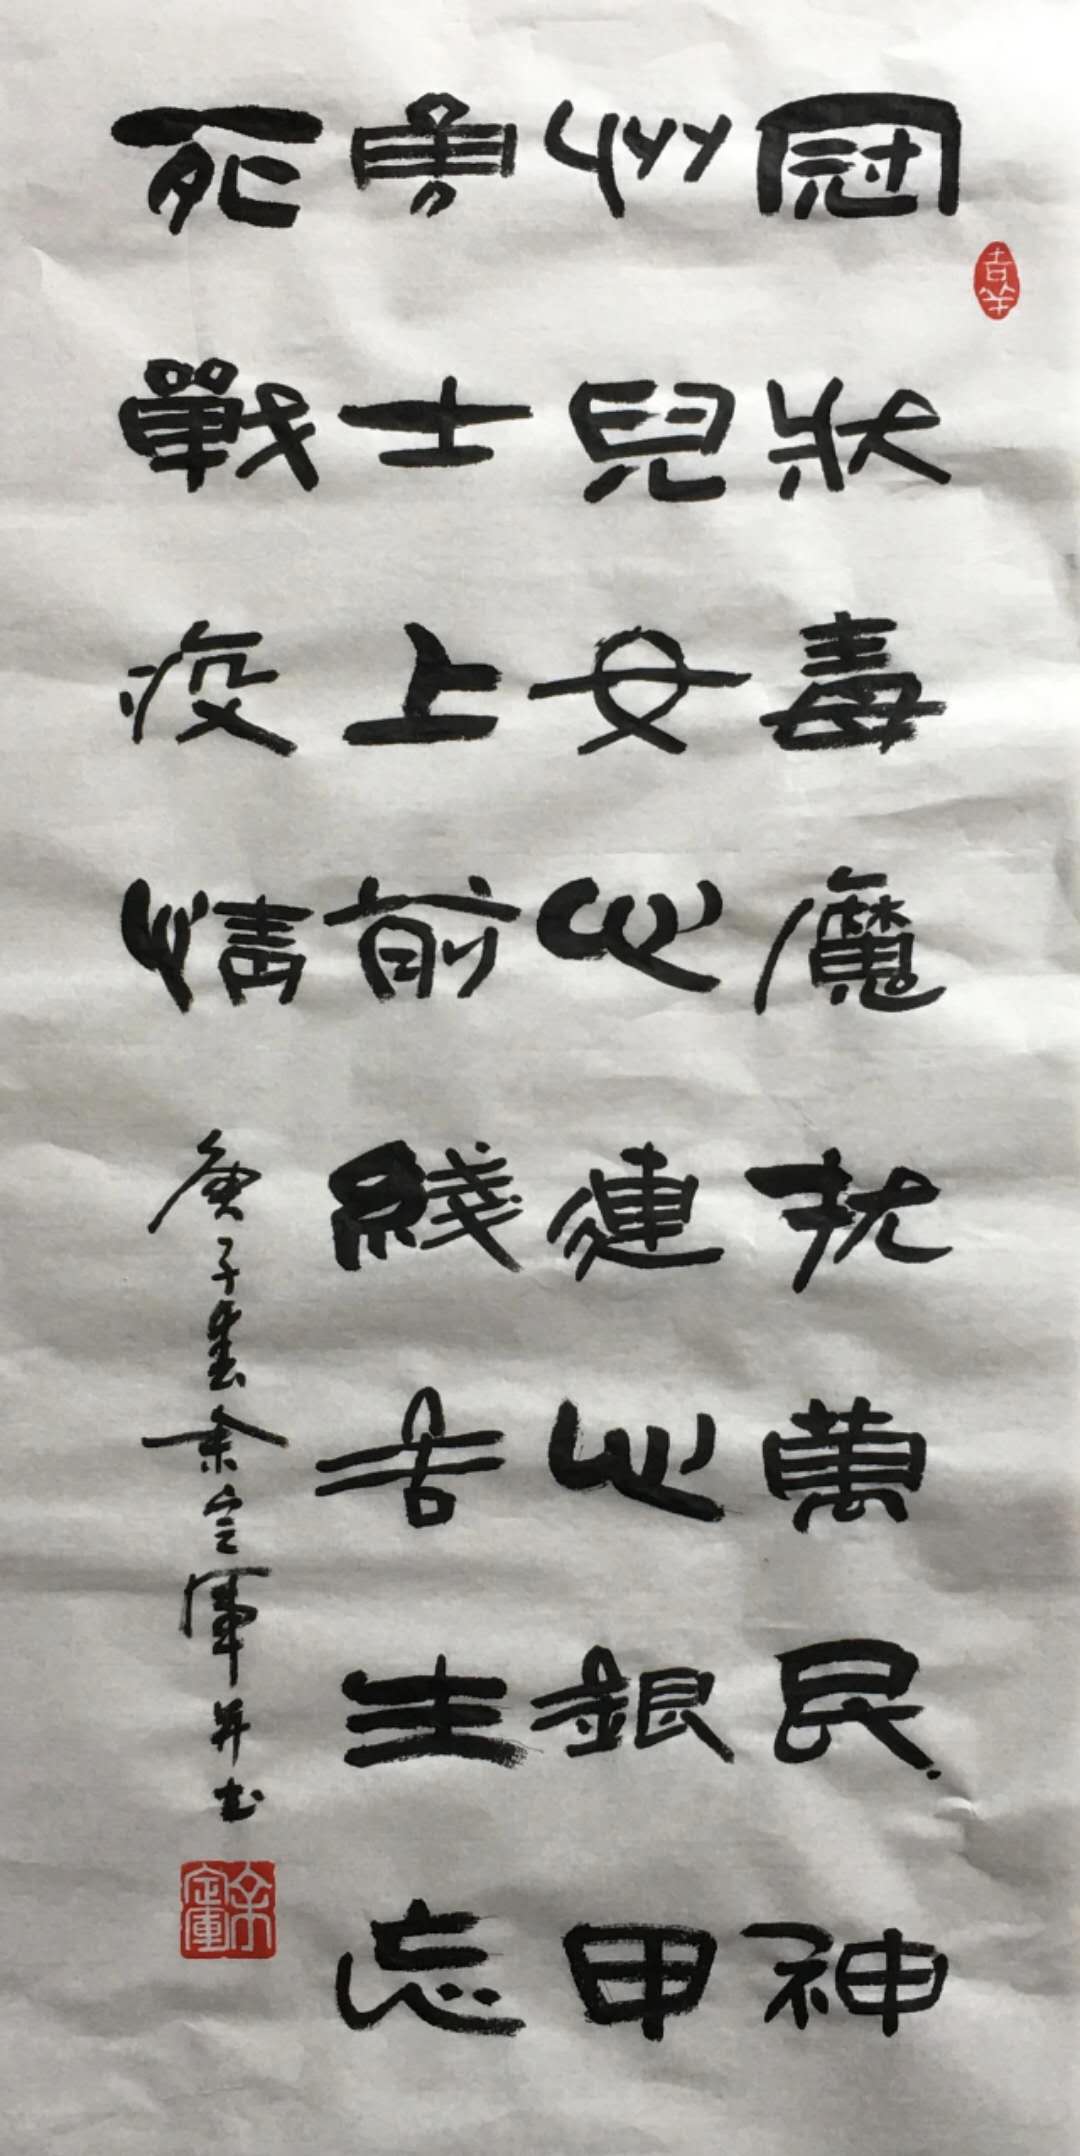 冠狀毒魔扰萬民神
州兒女心連心銀甲
勇士上前綫苦生忘
死戰疫情
庚子春余定軍并书
吉羊
余定軍